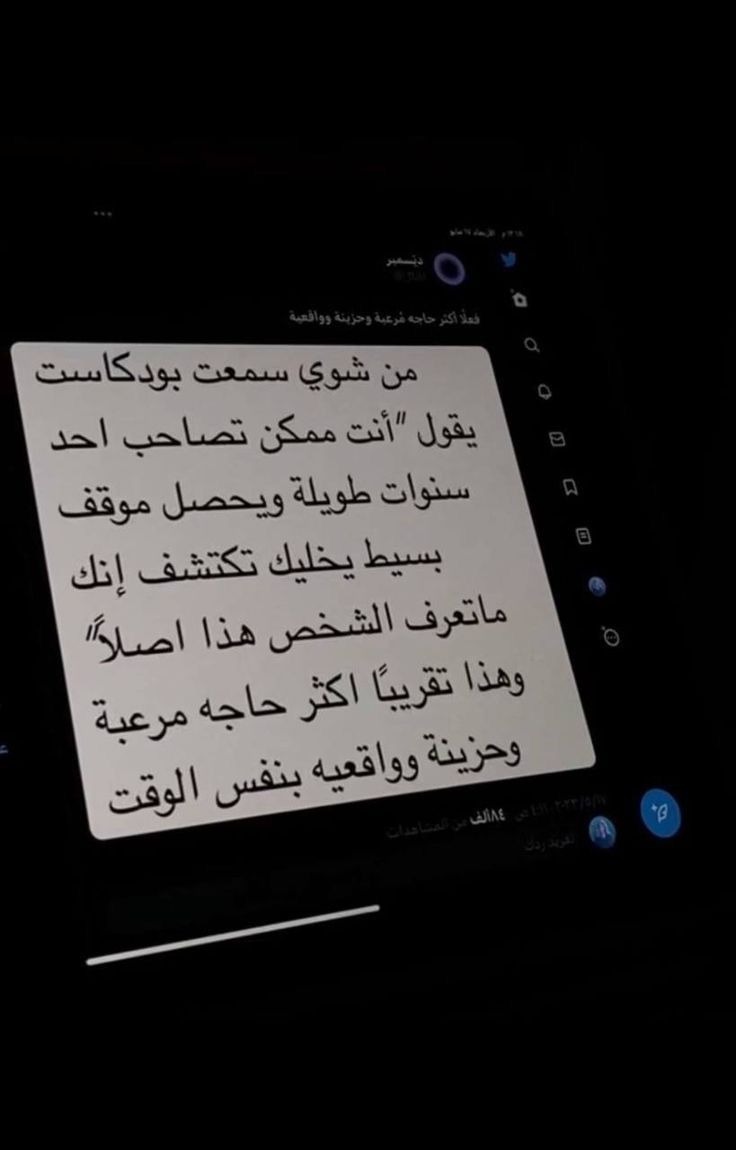 الأربعاء ١٧ مايو
ديسمبر
فعلًا أكثر حاجه مُرعبة وحزينة وواقعية
من شوي سمعت بودكاست
يقول "أنت ممكن تصاحب احد
سنوات طويلة ويحصل موقف
بسيط يخليك تكتشف إنك
ماتعرف الشخص هذا اصلاً"
وهذا تقريبًا اكثر حاجه مرعبة
وحزينة وواقعيه بنفس الوقت
٢٠٢٣/٥/١٧ ٤:١١ ص ٨٤ألف من المشاهدات
تغريد ردك